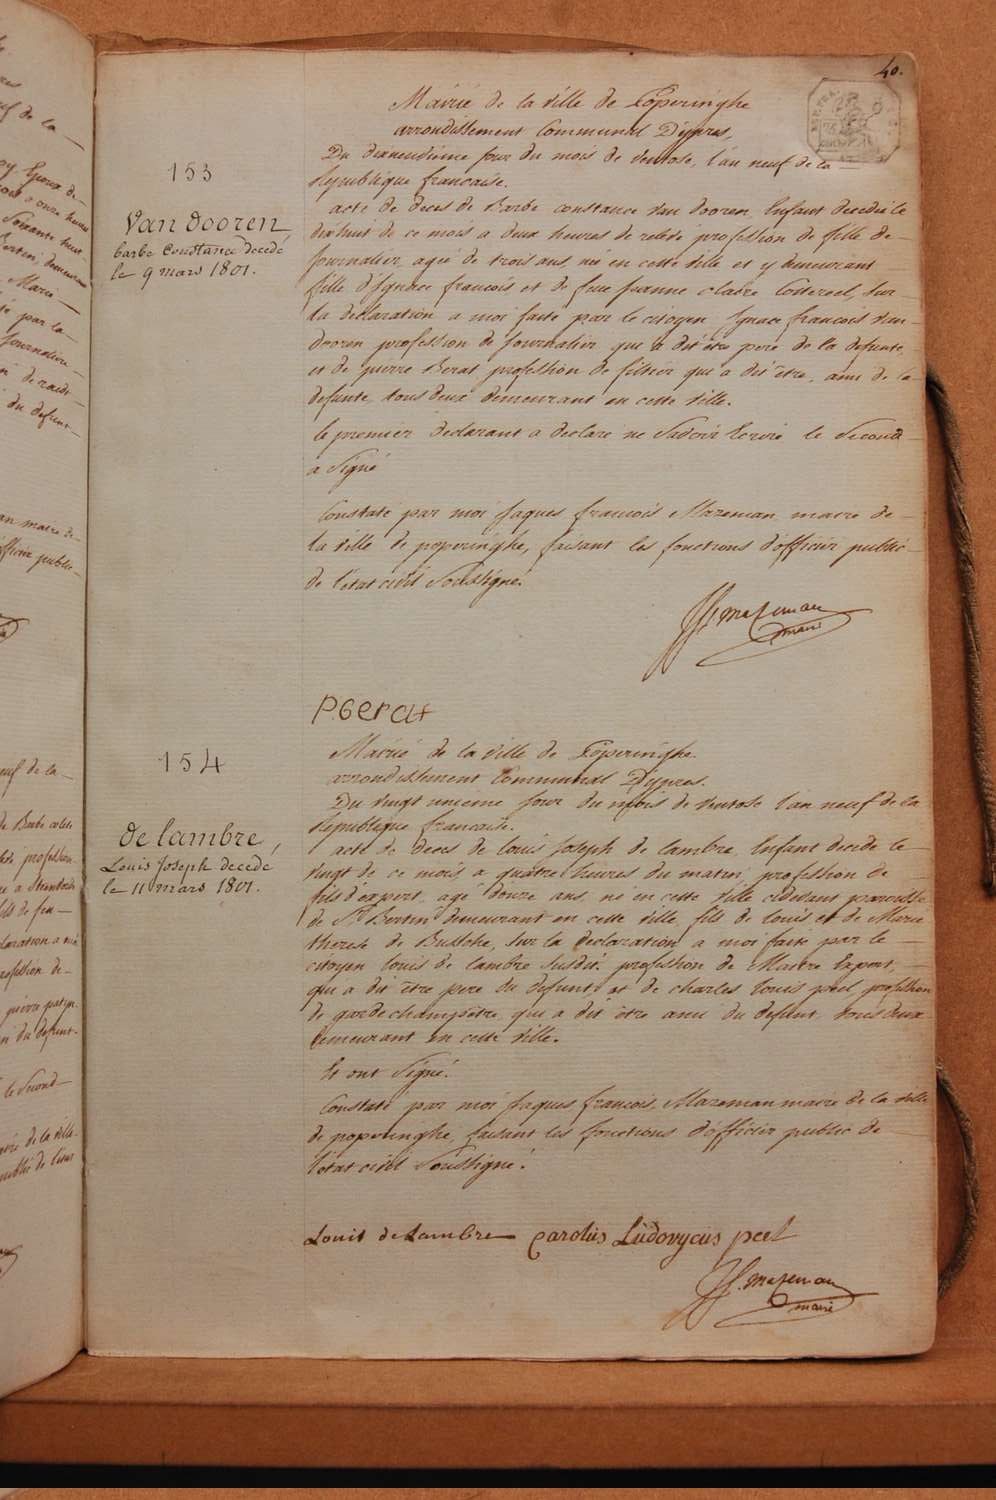 40.
Mairie de la ville de Poperinghe
arrondissement Communal Dypres,
Du dixneuvième jour du mois de ventose, l'an neuf de la
Republique francaise.
153
Van dooren
barbe Constance decedé
le 9 mars 1801.
acte de deces de Barbe constance van dooren, Enfant decedée le
dixhuit de ce mois a deux heures de relevé profession de fille de
journalier, agée de trois ans, née en cette ville et y demeurant
fille d'Ignace francois et de feue jeanne claire Cottereel, sur
la declaration a moi faite par le citoyen Ignace francois van
dooren profession de journalier qui a dit être pere de la defunte,
et de pierre Gerat profession de filtier qui a dit être, ami de la
defunte, tous deux demeurant en cette ville.
le premier declarant a declaré ne savoir Ecrire le second
a signé
Constaté par moi Jaques francois Mazeman maire de
la ville de poperinghe, faisant les fonctions d'officier public
de l'état civil soussigné.
JF mazeman
maire
P.Gerat
Mairie de la ville de Poperinghe
arrondissement Communal Dypres.
Du vingt unieme jour du mois de ventose l'an neuf de la
Republique francaise.
154
de lambre,
Louis joseph decedé
le 11 mars 1801.
acte de deces de louis joseph de lambre, Enfant decede le
vingt de ce mois a quatre heures du matin, profession de
fils d'expert, agé douze ans, né en cette ville cidevant paroisse
de St Bertin demeurant en cette ville, fils de louis et de Marie
therese de Bussche, sur la declaration a moi faite par le
citoyen louis de lambre susdit profession de Maitre Expert,
qui a dit être pere du defunt, et de charles louis peel profession
de gardechampêtre, qui a dit être ami du defunt, tous deux
demeurant en cette ville.
Et ont signé.
Constaté par moi Jaques francois Mazeman maire de la ville
de poperinghe, faisant les fonctions d'officier public de
l'état civil soussigné.
Louis de Lambre Carolus Ludovycus peel
JF. mazeman
maire